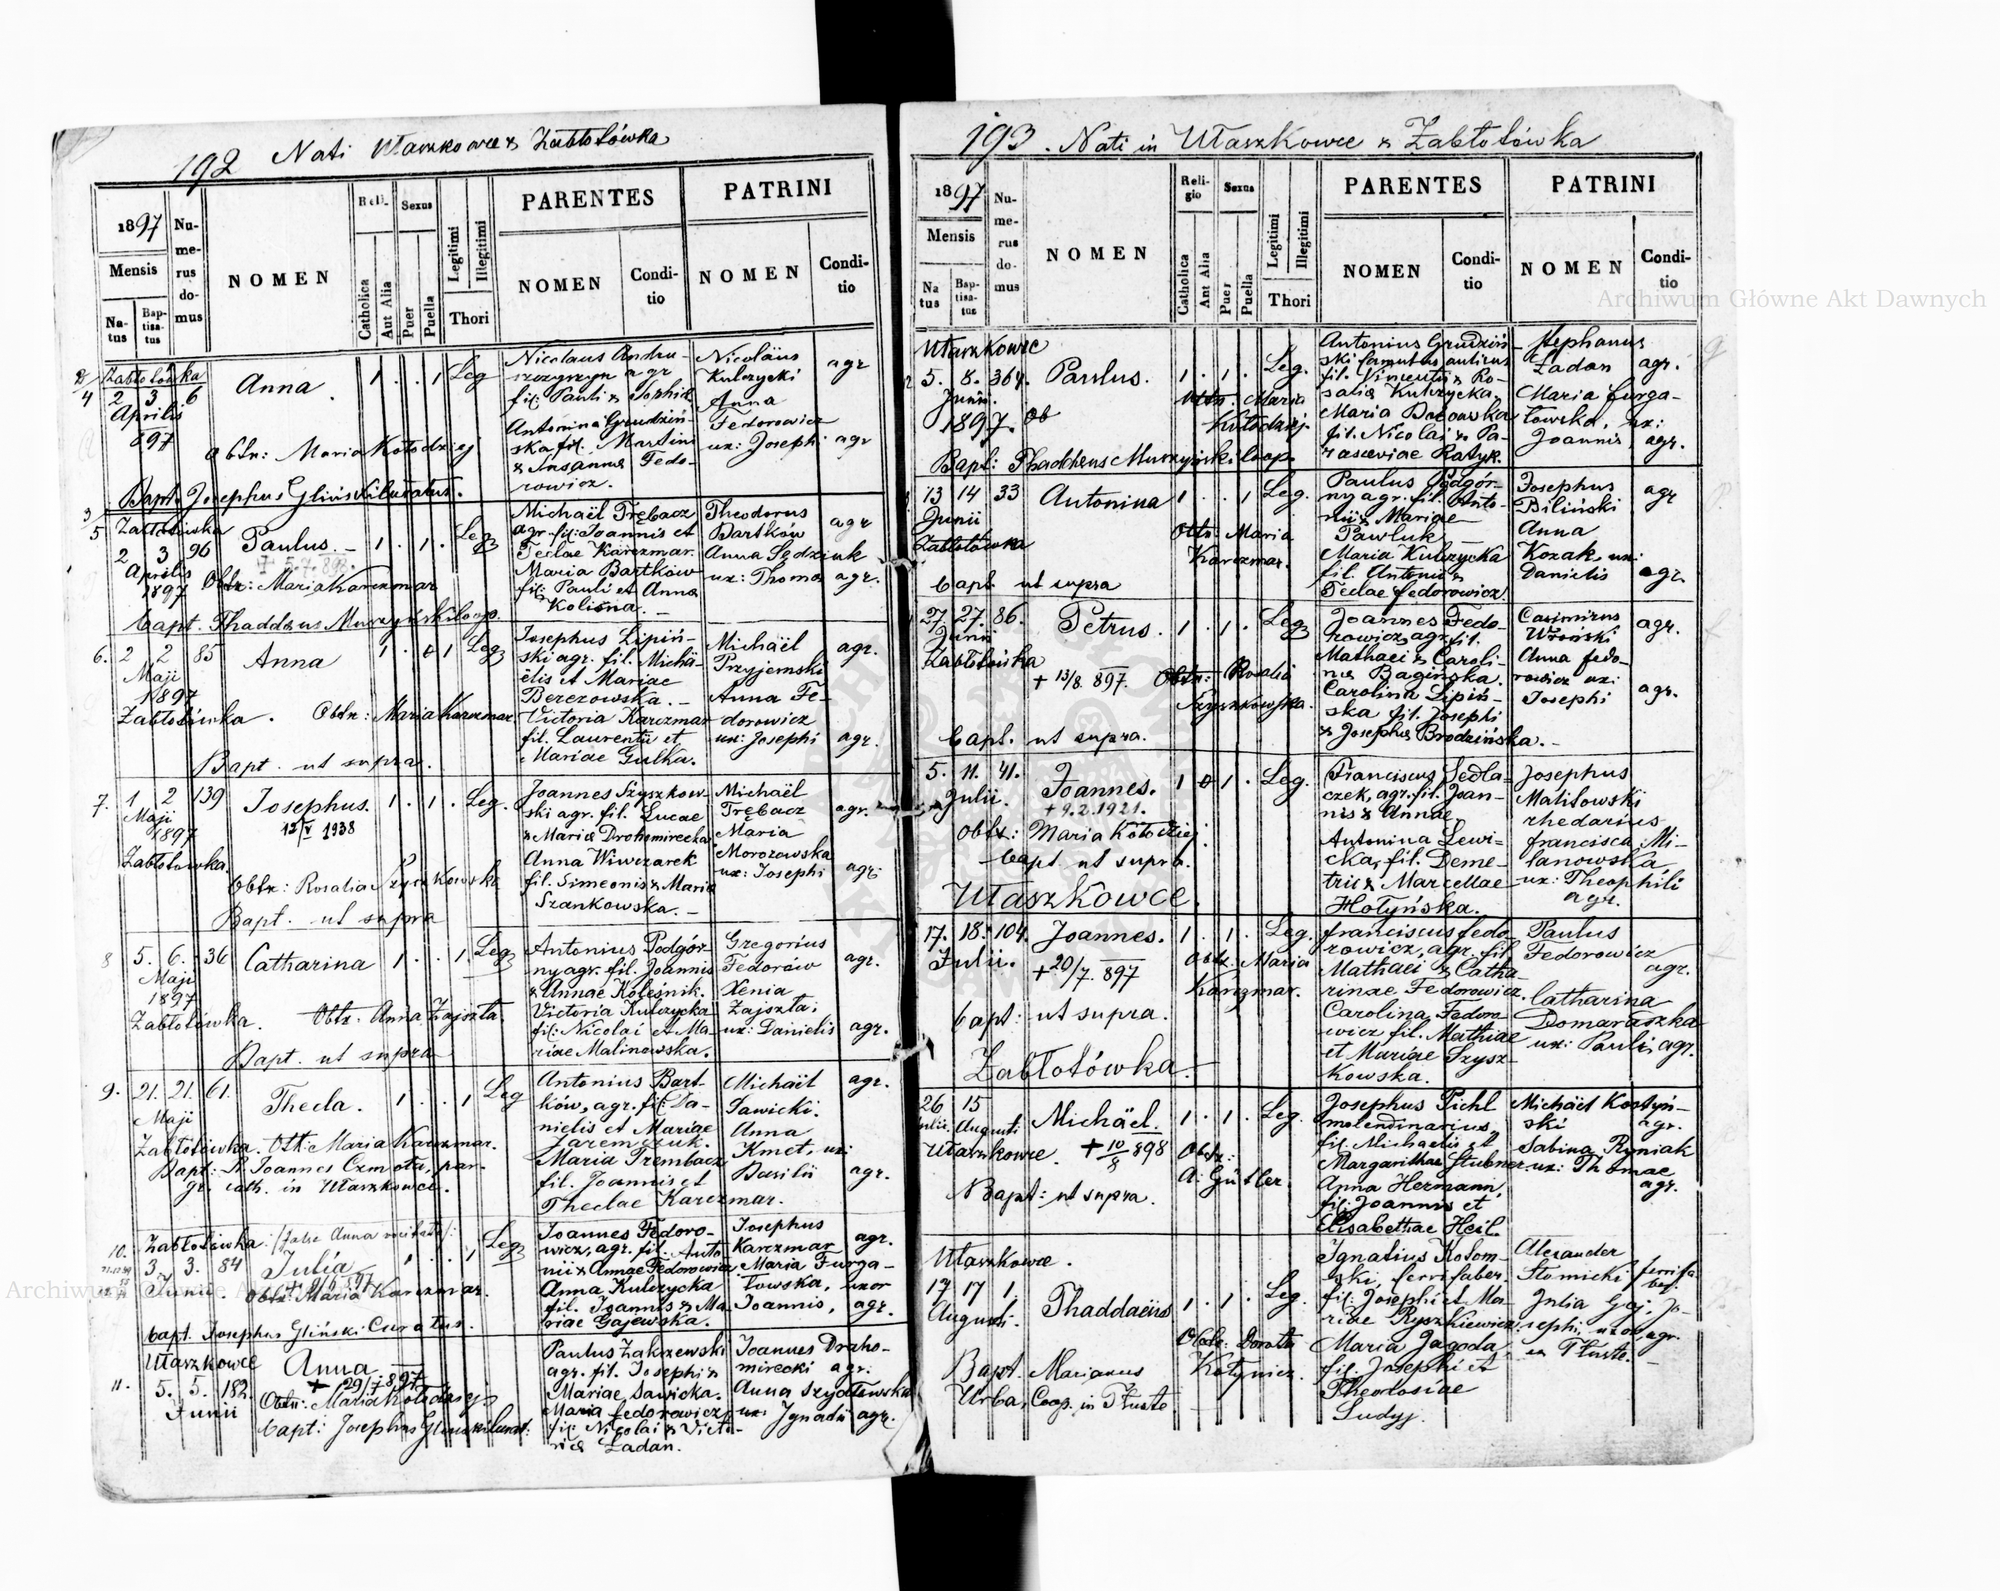 192 Nati Ułaszkowce & Zabłotówka
1897
Mensis
Na-
tus
Bap-
tisa-
tus
Nu-
me-
rus
do-
mus
NOMEN
Reli-
Catholica
Aut Alia
Sexus
Puer
Puella
Legitimi
Illegitimi
Thori
PARENTES
NOMEN
Condi-
tio
PATRINI
NOMEN
Condi-
tio
Zabłotówka
2 3 6
Aprilis
897
Anna
1 . . 1 Leg
Obtr: Maria Kołodziej
Bapt. Josephus Gliński Curatus.
Nicolaus Andru-
szczyszyn agr
fil. Pauli & Sophiæ
Antonina Grudziń-
ska fil. Martini
& Susannæ Fedo-
rowicz.
Nicolaus
Kulczycki
Anna
Fedorowicz
ux: Josephi
agr
agr
3
5 Zabłotówka
2 3 96
Aprilis
1897
Paulus. –
1 . 1 . Leg
Obtr: Maria Karczmar
bapt. Thaddæus Muszyński Coop.
Michaël Trębacz
agr. fil: Joannis et
Teclae Karczmar.
Maria Bartków
fil: Pauli et Annæ
Koliśna. –
Theodorus
Bartków
Anna Sędziuk
ux: Thomæ
agr
agr.
6. 2 2 85
Maji
1897
Zabłotówka.
Anna
Leg
Obtr: Maria Karczmar
Bapt. ut supra.
Josephus Lipiń-
ski agr. fil. Micha-
elis et Mariae
Berezowska. –
Victoria Karczmar
fil. Laurentii et
Mariae Gulka.
Michaël
Przyjemski
Anna Fe-
dorowicz
ux: Josephi
agr.
agr.
7. 1 2 139
Maji
1897
Zabłotówka.
Josephus.
12/V 1938
1 . 1 . Leg.
Obtr: Rosalia Szyszkowska
Bapt. ut supra
Joannes Szyszkow-
ski agr. fil. Lucae
& Mariæ Drohomirecka
Anna Wiwczarek
fil. Simeonis & Mariæ
Szankowska. –
Michaël
Trębacz
Maria
Morozowska
ux: Josephi
agr.
agr.
8 5. 6. 36
Maji
1897
Zabłotówka.
Catharina
1 . . 1 Leg
Obtr. Anna Zajszta.
Bapt. ut supra
Antonius Podgór-
ny agr. fil. Joannis
& Annae Koleśnik.
Victoria Kulczycka
fil: Nicolai et Ma-
riae Malinowska.
Gregorius
Fedorów
Xenia
Zajszta,
ux: Danielis
agr.
agr.
9. 21. 21. 61.
Maji
Thecla.
1 . . 1 Leg
Zabłotówka. Obtr: Maria Karczmar.
gr. cath. in Ułaszkowce.
Antonius Bart-
ków, agr. fil: Da-
nielis et Mariae
Zaremczuk.
Maria Trembacz
fil. Joannis et
Theclae Karczmar.
Michaël
Sawicki.
Anna
Kmet, ux:
Basilii
agr.
agr.
10. Zabłotówka.
3. 3. 84
Junii
Julia
1 . . 1 Leg
Obtr: Maria Karczmar.
bapt. Josephus Gliński Curatus.
Joannes Fedoro-
wicz, agr. fil. Anto-
nii & Annae Fedorowicz
Anna Kulczycka
fil. Joannis & Ma-
riae Gajewska.
Josephus
Karczmar
Maria Furga-
łowska, uxor
Joannis,
agr.
agr.
11. Ułaszkowce
5. 5. 182.
Junii
Anna
+ 29/7 897
Obtr: Maria Kołodziej
bapt: Josephus Gliński Curat:
Paulus Zakrzewski
agr. fil. Josephi &
Mariae Sawicka.
Maria Fedorowicz
fil: Nicolai & Victo-
riæ Żadan.
Joannes Droho-
mirecki agr:
Anna Szydłowska
ux: Ignatii agr.
193. Nati in Ułaszkowce & Zabłotówka
1897
Mensis
Na
tus
Bap-
tisa-
tus
Nu-
me-
rus
do-
mus
NOMEN
Reli-
gio
Catholica
Aut Alia
Sexus
Puer
Puella
Legitimi
Illegitimi
Thori
PARENTES
NOMEN
Condi-
tio
PATRINI
NOMEN
Condi-
tio
Ułaszkowce
5. 8. 364.
Junii
1897.
Paulus.
1 . 1 . Leg.
Obtr. Maria
Kołodziej
Bapt: Thaddæus Muszyński Coop.
Antonius Grudziń-
fil. Vincentii & Ro-
saliæ Kulczycka,
Maria
fil. Nicolai & Pa-
rasceviae Ratyk.
Stephanus
Żadan
Maria Furga-
łowska, ux:
Joannis,
agr.
agr.
13 14 33
Junii
Zabłotówka
Antonina
1 . . 1 Leg.
Obtr: Maria
Karczmar.
bapt ut supra
Paulus Podgór-
ny agr. fil. Anto-
nii & Mariae
Pawluk –
Maria Kulczycka
fil. Antonii &
Teclae Fedorowicz.
Josephus
Biliński
Anna
Kozak ux:
Danielis
agr
agr.
27. 27. 86.
Junii
Zabłotówka
Petrus.
1 . 1 . Leg
+ 13/8. 897.
Obtr: Rosalia
Szyszkowska.
bapt. ut supra.
Joannes Fedo-
rowicz, agr. fil.
Mathaei & Caroli-
næ Bagińska.
Carolina Lipiń-
ska fil. Josephi
& Josephæ Brodzińska. –
Casimirus
Wroński
Anna Fedo-
rowicz ux:
Josephi
agr.
agr.
5. 11. 41.
Julii.
Joannes.
+ 9.2.1921.
Leg.
Obtr: Maria Kołodziej
bapt. ut supra.
Ułaszkowce.
Franciscus Sedla-
czek, agr. fil. Joan-
nis & Annae
Antonina Lewi-
cka, fil. Deme-
trii & Marcellae
Hołyńska.
Josephus
Malitowski
rhedarius
Francisca Mi-
lanowska
ux: Theophili
agr.
17. 18. 104.
Julii.
Joannes.
+ 20/7. 897
1 . 1 . Leg.
Obtr. Maria
Karczmar.
bapt: ut supra.
Zabłotówka.
Franciscus Fedo-
rowicz, agr. fil.
Mathaei & Catha-
rinae Fedorowicz.
Carolina Fedoro-
wicz fil. Mathiae
et Mariae Szysz-
kowska.
Paulus
Fedorowicz
agr.
Catharina
Domaraszka
ux: Pauli, agr.
26 15
Julii. Augusti
Ułaszkowce.
Michäel.
+ 10/8 898
1 . 1 . Leg.
Obtr:
A. Gütler.
Bapt: ut supra.
Josephus Pichl
molendinarius,
fil. Michaelis et
Margarithae Stubner
Anna Hermann,
fil: Joannis et
Elisabethae Heil.
Michäel Kostyń-
ski agr.
Sabina Ryniak
ux: Thomae
agr.
Ułaszkowce.
17 17 1.
Augusti.
Thaddaeus
1 . 1 . Leg.
Bapt. Marianus
Urba, Coop. in Tłuste
Ignatius Kołom-
ski, ferrifaber.
fil: Josephi et Ma-
riae Ryszkiewicz
Maria Jagoda
fil. Josephi et
Theodosiae
Sudyj.
Alexander
Słomicki ferrifa-
ber.
Julia Gaj, Jo-
sephi, uxor agr.
in Tłuste. –
Archiwum Główne Akt Dawnych